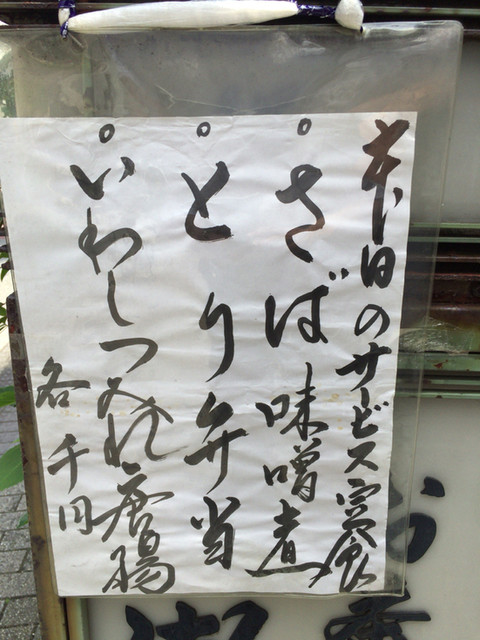 本日のサービス定食
。さば味噌煮
。とり弁当
。いわしつみれ唐揚
各千円